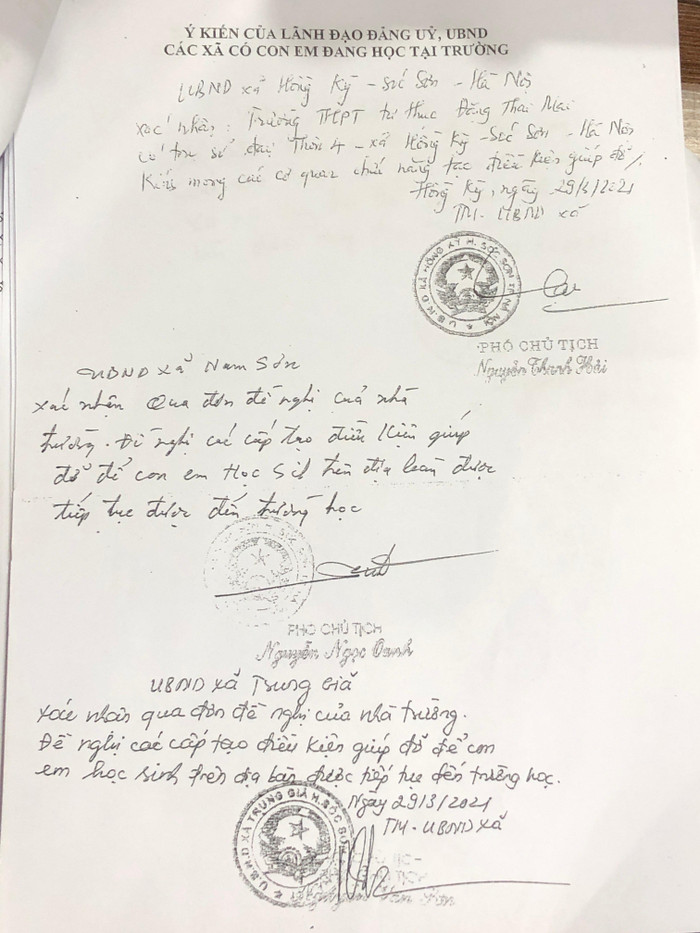 Ý KIẾN CỦA LÃNH ĐẠO ĐẢNG UỶ, UBND
CÁC XÃ CÓ CON EM ĐANG HỌC TẠI TRƯỜNG
UBND xã Hồng Kỳ - Sóc Sơn - Hà Nội
xác nhận: Trường THPT tư thục Đặng Thai Mai
có trụ sở tại Thôn 4 - xã Hồng Kỳ - Sóc Sơn - Hà Nội
Kính mong các cơ quan chức năng tạo điều kiện giúp đỡ ./.
Hồng Kỳ, ngày 29/3/2021
TM. UBND xã
U.B.N.D XÃ HỒNG KỲ H. SÓC SƠN TP. HÀ NỘI
PHÓ CHỦ TỊCH
Nguyễn Thanh Hải
UBND xã Nam Sơn
xác nhận Qua đơn đề nghị của nhà
trường. Đề nghị các cấp tạo điều kiện giúp
đỡ để con em Học Sinh trên địa bàn được
tiếp tục được đến trường học
PHÓ CHỦ TỊCH
Nguyễn Ngọc Oanh
UBND xã Trung Giã
xác nhận qua đơn đề nghị của nhà trường.
Đề nghị các cấp tạo điều kiện giúp đỡ để con
em học sinh trên địa bàn được tiếp tục đến trường học.
Ngày 29/3/2021
TM - UBND xã
U.B.N.D XÃ TRUNG GIÃ H. SÓC SƠN
CHỦ TỊCH